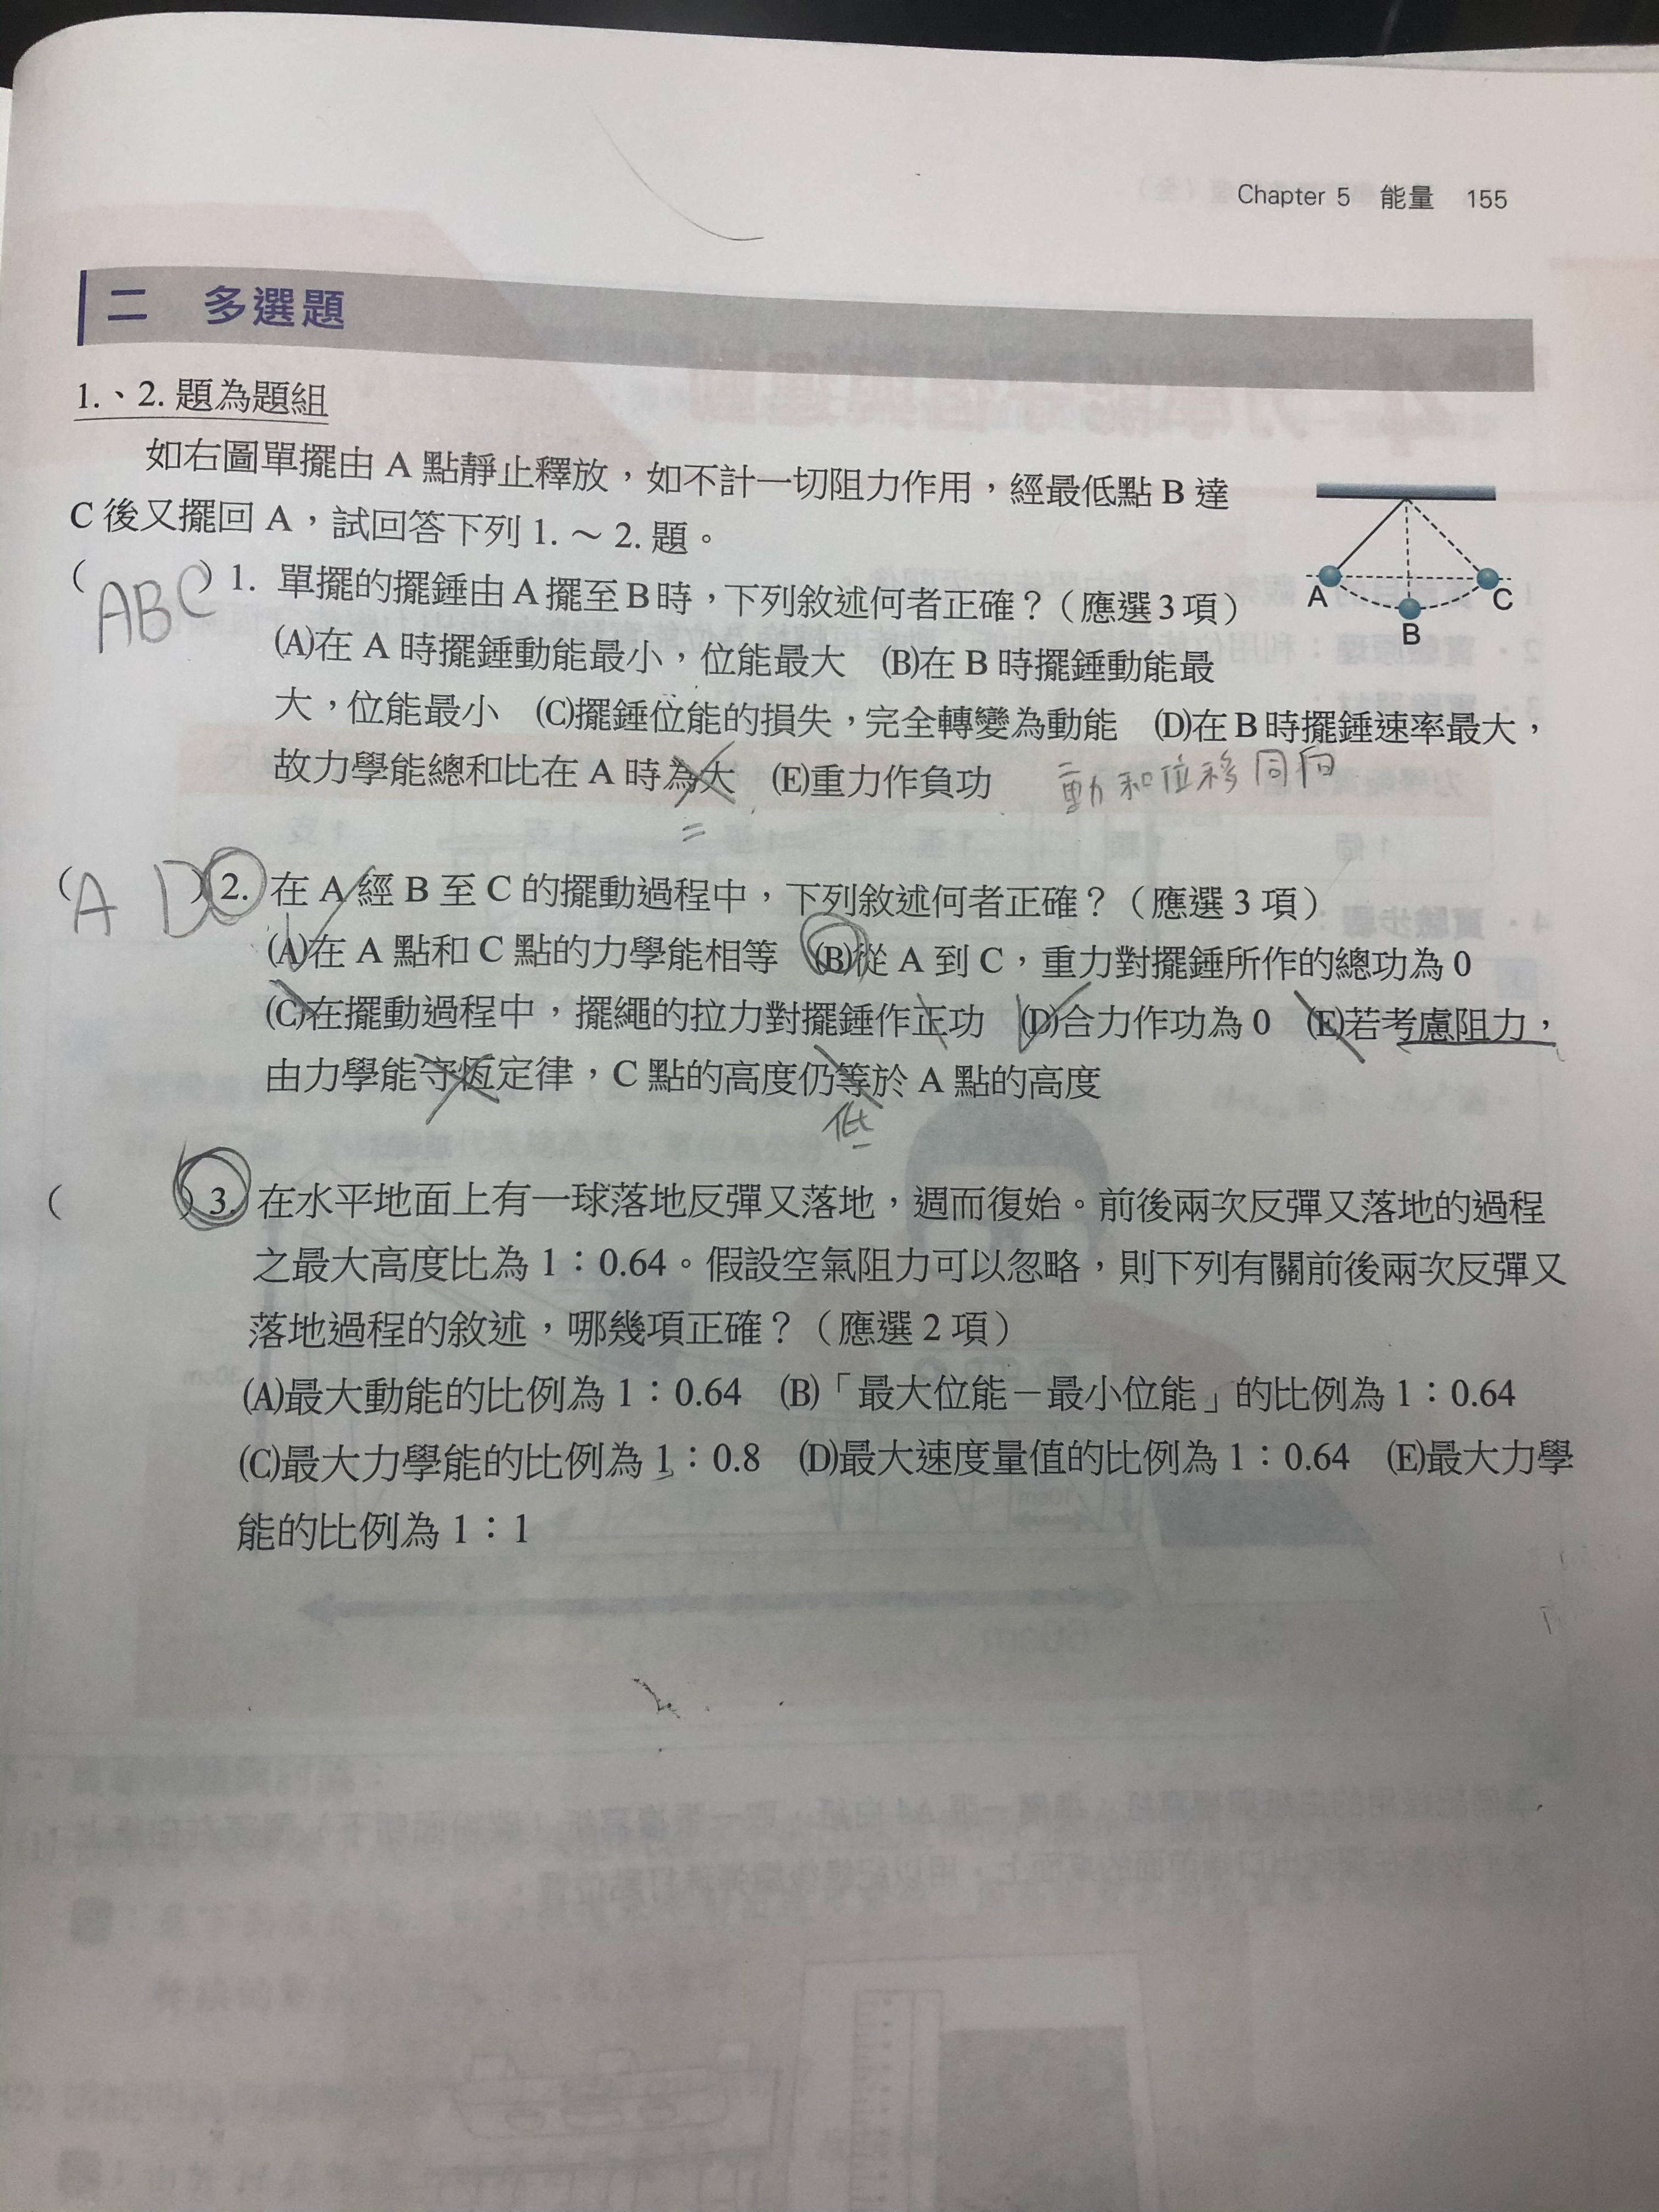 Chapter 5 能量 155
二 多選題
1.、2. 題為題組
如右圖單擺由 A 點靜止釋放，如不計一切阻力作用，經最低點 B 達
C 後又擺回 A，試回答下列 1. ~ 2. 題。
A
B
C
( ABC ) 1. 單擺的擺錘由 A 擺至 B 時，下列敘述何者正確？（應選 3 項）
(A)在 A 時擺錘動能最小，位能最大 (B)在 B 時擺錘動能最
大，位能最小 (C)擺錘位能的損失，完全轉變為動能 (D)在 B 時擺錘速率最大，
故力學能總和比在 A 時為大 (E)重力作負功 動和位移同向
=
( A D ) 2. 在 A 經 B 至 C 的擺動過程中，下列敘述何者正確？（應選 3 項）
(A)在 A 點和 C 點的力學能相等 (B)從 A 到 C，重力對擺錘所作的總功為 0
(C)在擺動過程中，擺繩的拉力對擺錘作正功 (D)合力作功為 0 (E)若考慮阻力，
由力學能守恆定律，C 點的高度仍等於 A 點的高度
低
( ) 3. 在水平地面上有一球落地反彈又落地，週而復始。前後兩次反彈又落地的過程
之最大高度比為 1：0.64。假設空氣阻力可以忽略，則下列有關前後兩次反彈又
落地過程的敘述，哪幾項正確？（應選 2 項）
(A)最大動能的比例為 1：0.64 (B)「最大位能－最小位能」的比例為 1：0.64
(C)最大力學能的比例為 1：0.8 (D)最大速度量值的比例為 1：0.64 (E)最大力學
能的比例為 1：1